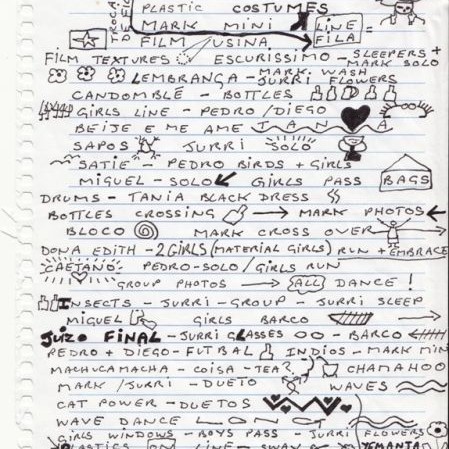 PLASTIC COSTUMES
MARK MINI LINE
FILM USINA FILA
FILM TEXTURES ESCURISSIMO - SLEEPERS + MARK SOLO
LEMBRANÇA - MARK WASH JURRI FLOWERS
CANDOMBLÉ - BOTTLES
GIRLS LINE - PEDRO / DIEGO
BEIJE E ME AME
SAPOS JURRI SOLO
SATIE - PEDRO BIRDS + GIRLS
MIGUEL - SOLO GIRLS PASS BAGS
DRUMS - TANIA BLACK DRESS
BOTTLES CROSSING → MARK PHOTOS ←
BLOCO MARK CROSS OVER
DONA EDITH - 2 GIRLS (MATERIAL GIRLS) RUN + EMBRACE
CAETANO PEDRO-SOLO / GIRLS RUN
GROUP PHOTOS → ALL DANCE!
INSECTS - JURRI - GROUP - JURRI SLEEP
MIGUEL GIRLS BARCO →
JUIZO FINAL - JURRI GLASSES - BARCO
PEDRO + DIEGO - FUTBAL INDIOS - MARK MIN
MACHUCAMACHA - COISA - TEAR CHAMAHOO
MARK / JURRI - DUETO WAVES
CAT POWER - DUETOS
WAVE DANCE LONG
GIRLS WINDOWS - BOYS PASS - JURRI FLOWERS
PLASTICS LINE - YEMANJA